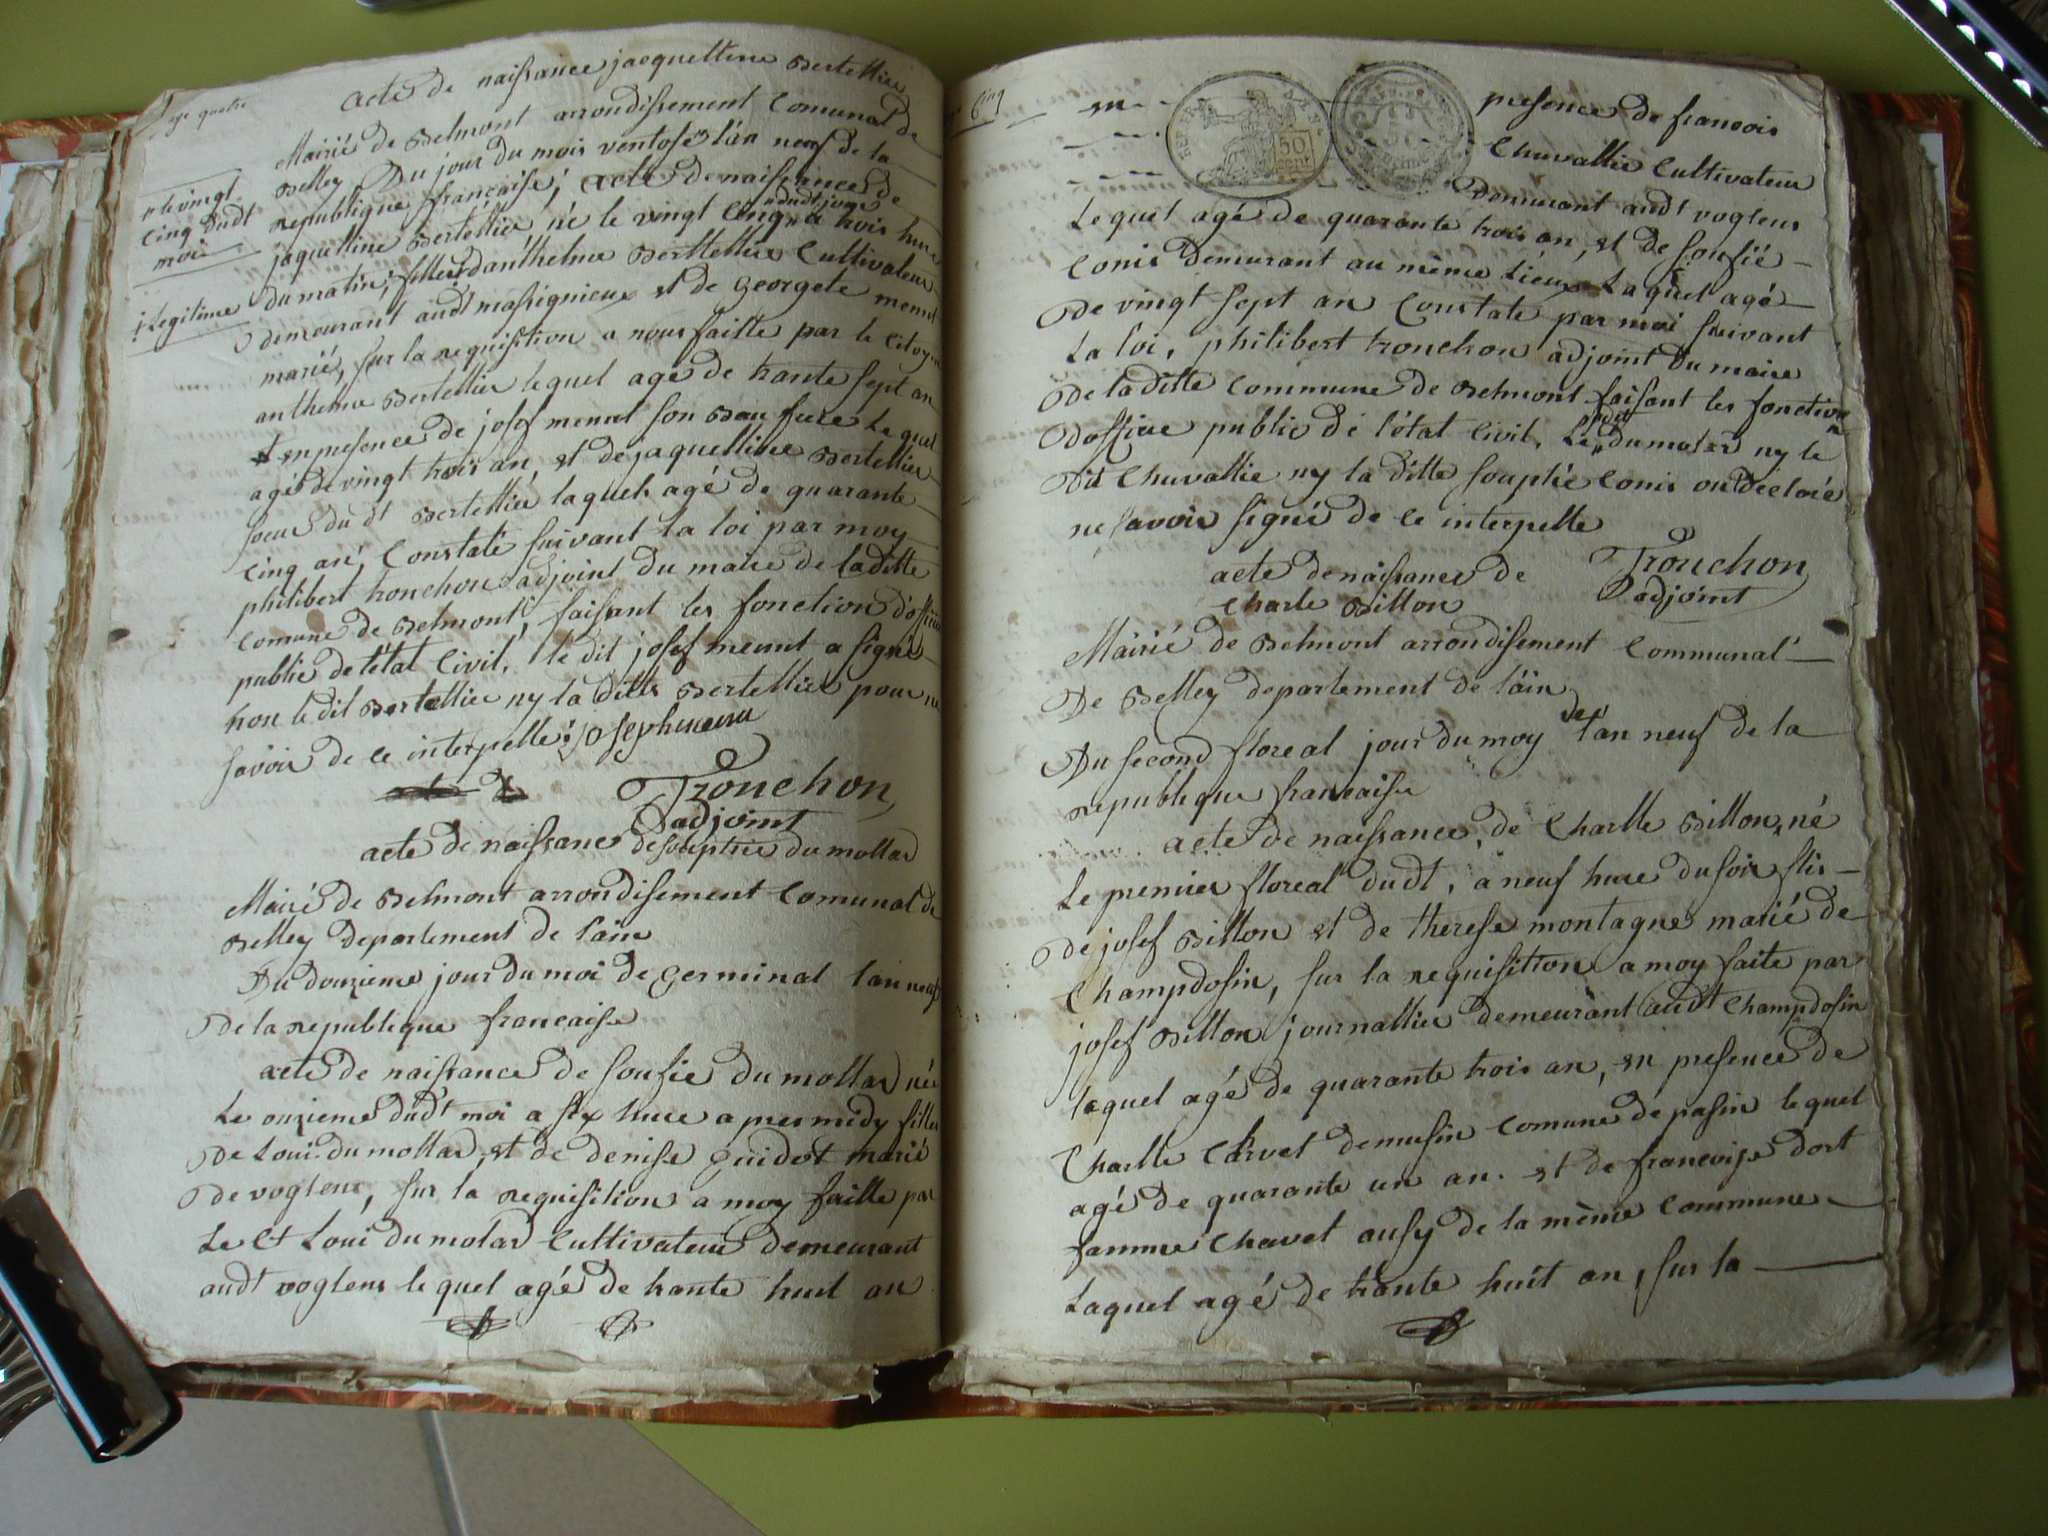 acte de naissance jacquelline Bertellier
page quatre
Mairié de Belmont arrondissement Comunal de
Belley Du jour du mois ventose l'an neuf de la
republique française; acte de naissance de
jaquelline Bertellier, né le vingt cinq "dudt jour" a trois hure
"le vingt
cinq dudt
mois
du matin; fille d'anthelme Berttellier Cultivateur
i Legitime
demeurant audt massignieux et de Georgete menut
marié, sur la requisition a nous faitte par le Citoyen
anthelme Bertellier lequel agé de trante sept an
et en presence de josef menut son Beau frere Le quel
agé de vingt trois an, et de jaquelline Bertellier
soeur du dt Bertellier laquel agé de quarante
cinq an, Constaté suivant la loi par moy
philibert tronchon adjoint du maire de la ditte
Comune de Belmont, faisant les fonction d'officier
public de l'état Civil, le dit josef menut a signé
non le dit Bertellier ny la ditte Bertellier pour ne
savoir de ce interpellé;
Tronchon
adjoint
acte de naissance de souphie du mollar
Mairié de Belmont arrondisement Comunal de
Belley departement de l'ain
Du douzieme jour du moi de germinal l'an neuf
De la republique francaise
acte de naissance de soufie du mollar née
Le onzieme dudt moi a six hure apres midy fille
De Loui du mollar, et de denise guidot marié
De voglens, sur la requisition a moy faitte par
Le Ct Loui du molar Cultivateur demeurant
audt voglens le quel agé de trante huit an
cinq
en presence de francois
Chuvallie Cultivateur
Demeurant audt voglens
Le quel agé de quarante trois an, et de soufié
Conis demurant au même Lieux Laquel agé
De vingt sept an Constaté par moi suivant
La loi, philibert tronchon adjoint du maire
De la ditte commune de Belmont faisant les fonction
D'officier public de l'état Civil, Le " dumolar ny le
Dit Chuvallie ny la ditte souphie Conis on déclaré
ne savoir signé de ce interpelle
Tronchon
adjoint
acte de naissance de
Charle Billon
Mairié de Belmont arrondisement Communal
De Belley departement de l'ain
Du second floreal jour du moy de l'an neuf de la
republique francaise
acte de naissance, de Charlle Billon, né
Le premier floreal dudt, a neuf hure du soir fils
De josef Billon et de therese montagne marié de
Champdosin, sur la requisition a moy faite par
josef Billon journallier demeurant audt Champdosin
laquel agé de quarante trois an, en presence de
Charlle Carvet demusin Comune de pasin lequel
agé de quarante un an. et de francoise dort
famme Chavet ausy de la même Commune
Laquel agé de trante huit an, sur la
REP. FRA.
50
cent.